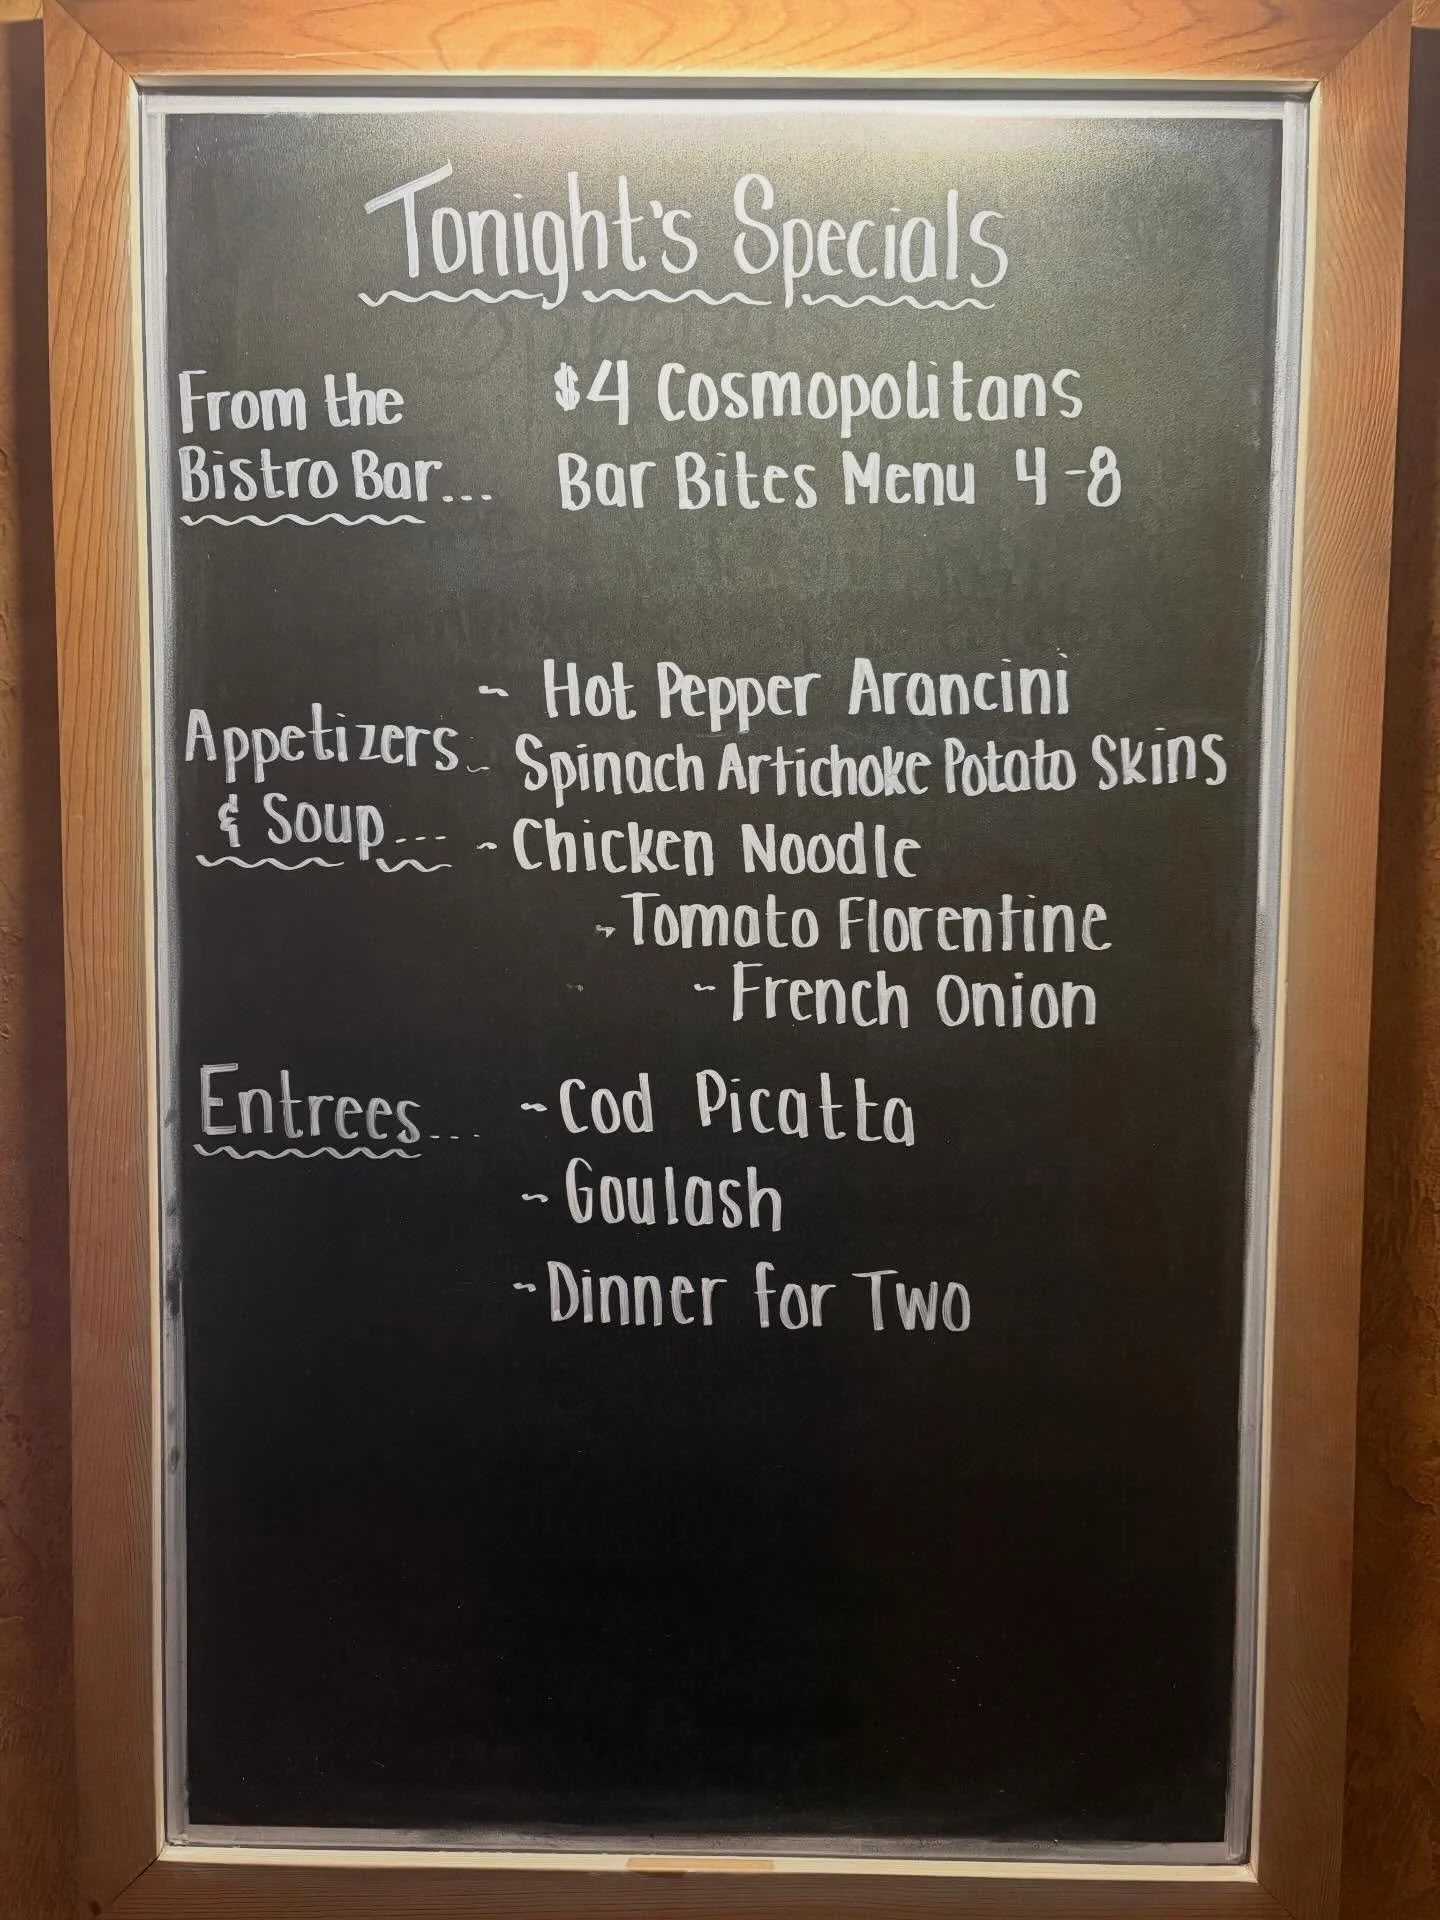 Tonight's Specials
From the
Bistro Bar...
$4 Cosmopolitans
Bar Bites Menu 4-8
Appetizers
& Soup...
~ Hot Pepper Arancini
~ Spinach Artichoke Potato Skins
~ Chicken Noodle
~ Tomato Florentine
~ French Onion
Entrees...
~ Cod Picatta
~ Goulash
~ Dinner for Two